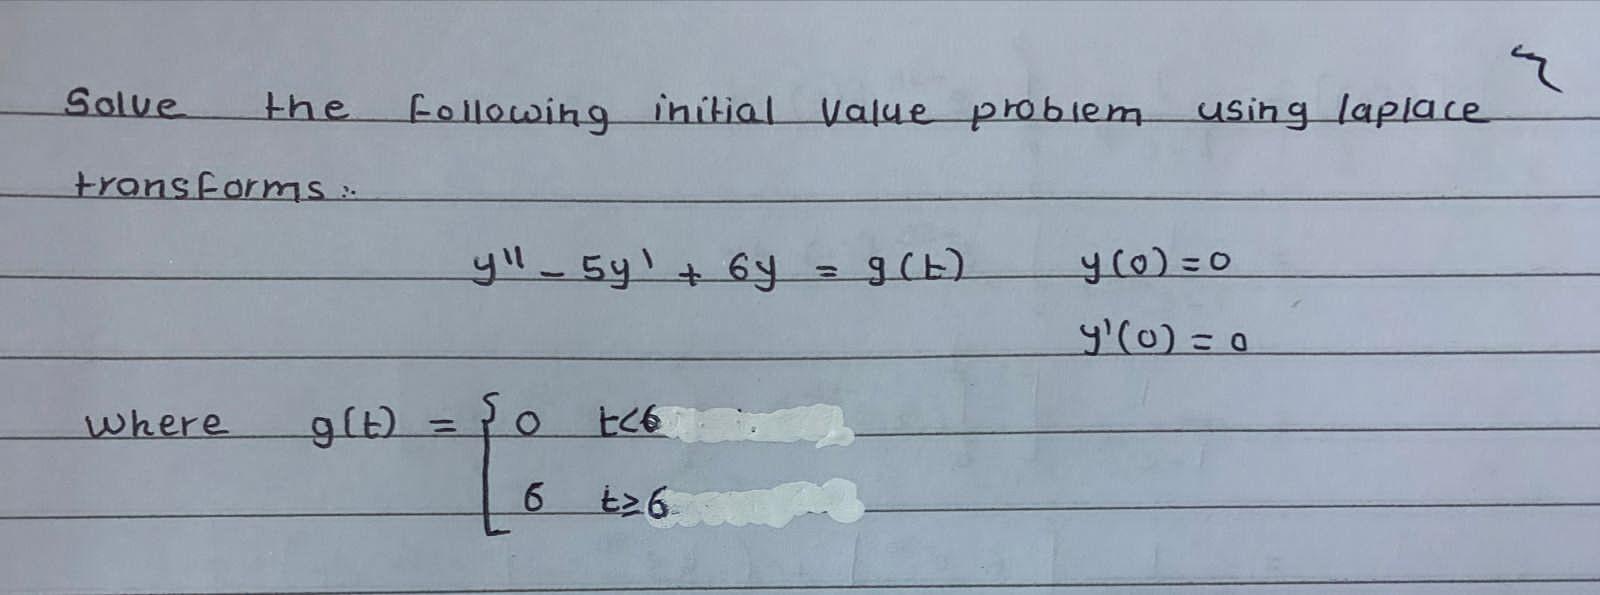 Solve the following initial value problem using laplace
transforms :.
y'' - 5y' + 6y = g(t) y(0) = 0
y'(0) = 0
where g(t) = { 0 t<6
6 t≥6